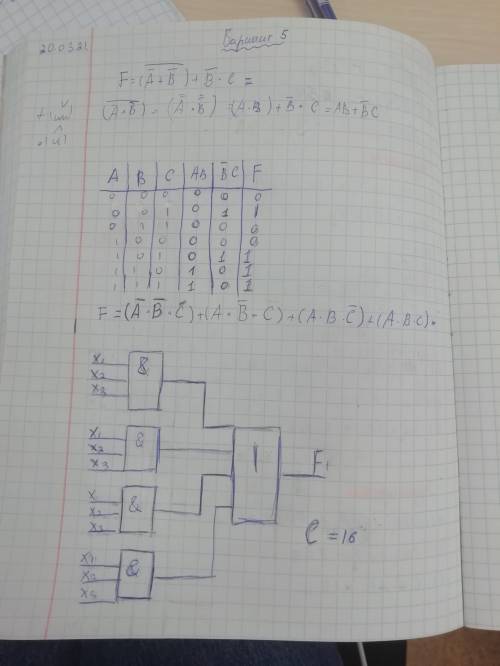 20.03.21
Вариант 5
F=(\overline{\overline{A}+\overline{B}})+\overline{B}·C=
+(или)
(\overline{\overline{A}+\overline{B}})=(\overline{\overline{A}}·\overline{\overline{B}})=(A·B)+\overline{B}·C=AB+\overline{B}C
·(и)
A B C AB \overline{B}C F
0 0 0 0 0 0
0 0 1 0 1 1
0 1 1 0 0 0
1 0 0 0 0 0
1 0 1 0 1 1
1 1 0 1 0 1
1 1 1 1 0 1
F=(\overline{A}·\overline{B}·\overline{C})+(A·\overline{B}·C)+(A·B·\overline{C})+(A·B·C)·
x1
x2
x3
&
x1
x2
x3
&
1
F1
x
x2
x3
&
C=16
x1
x2
x3
&